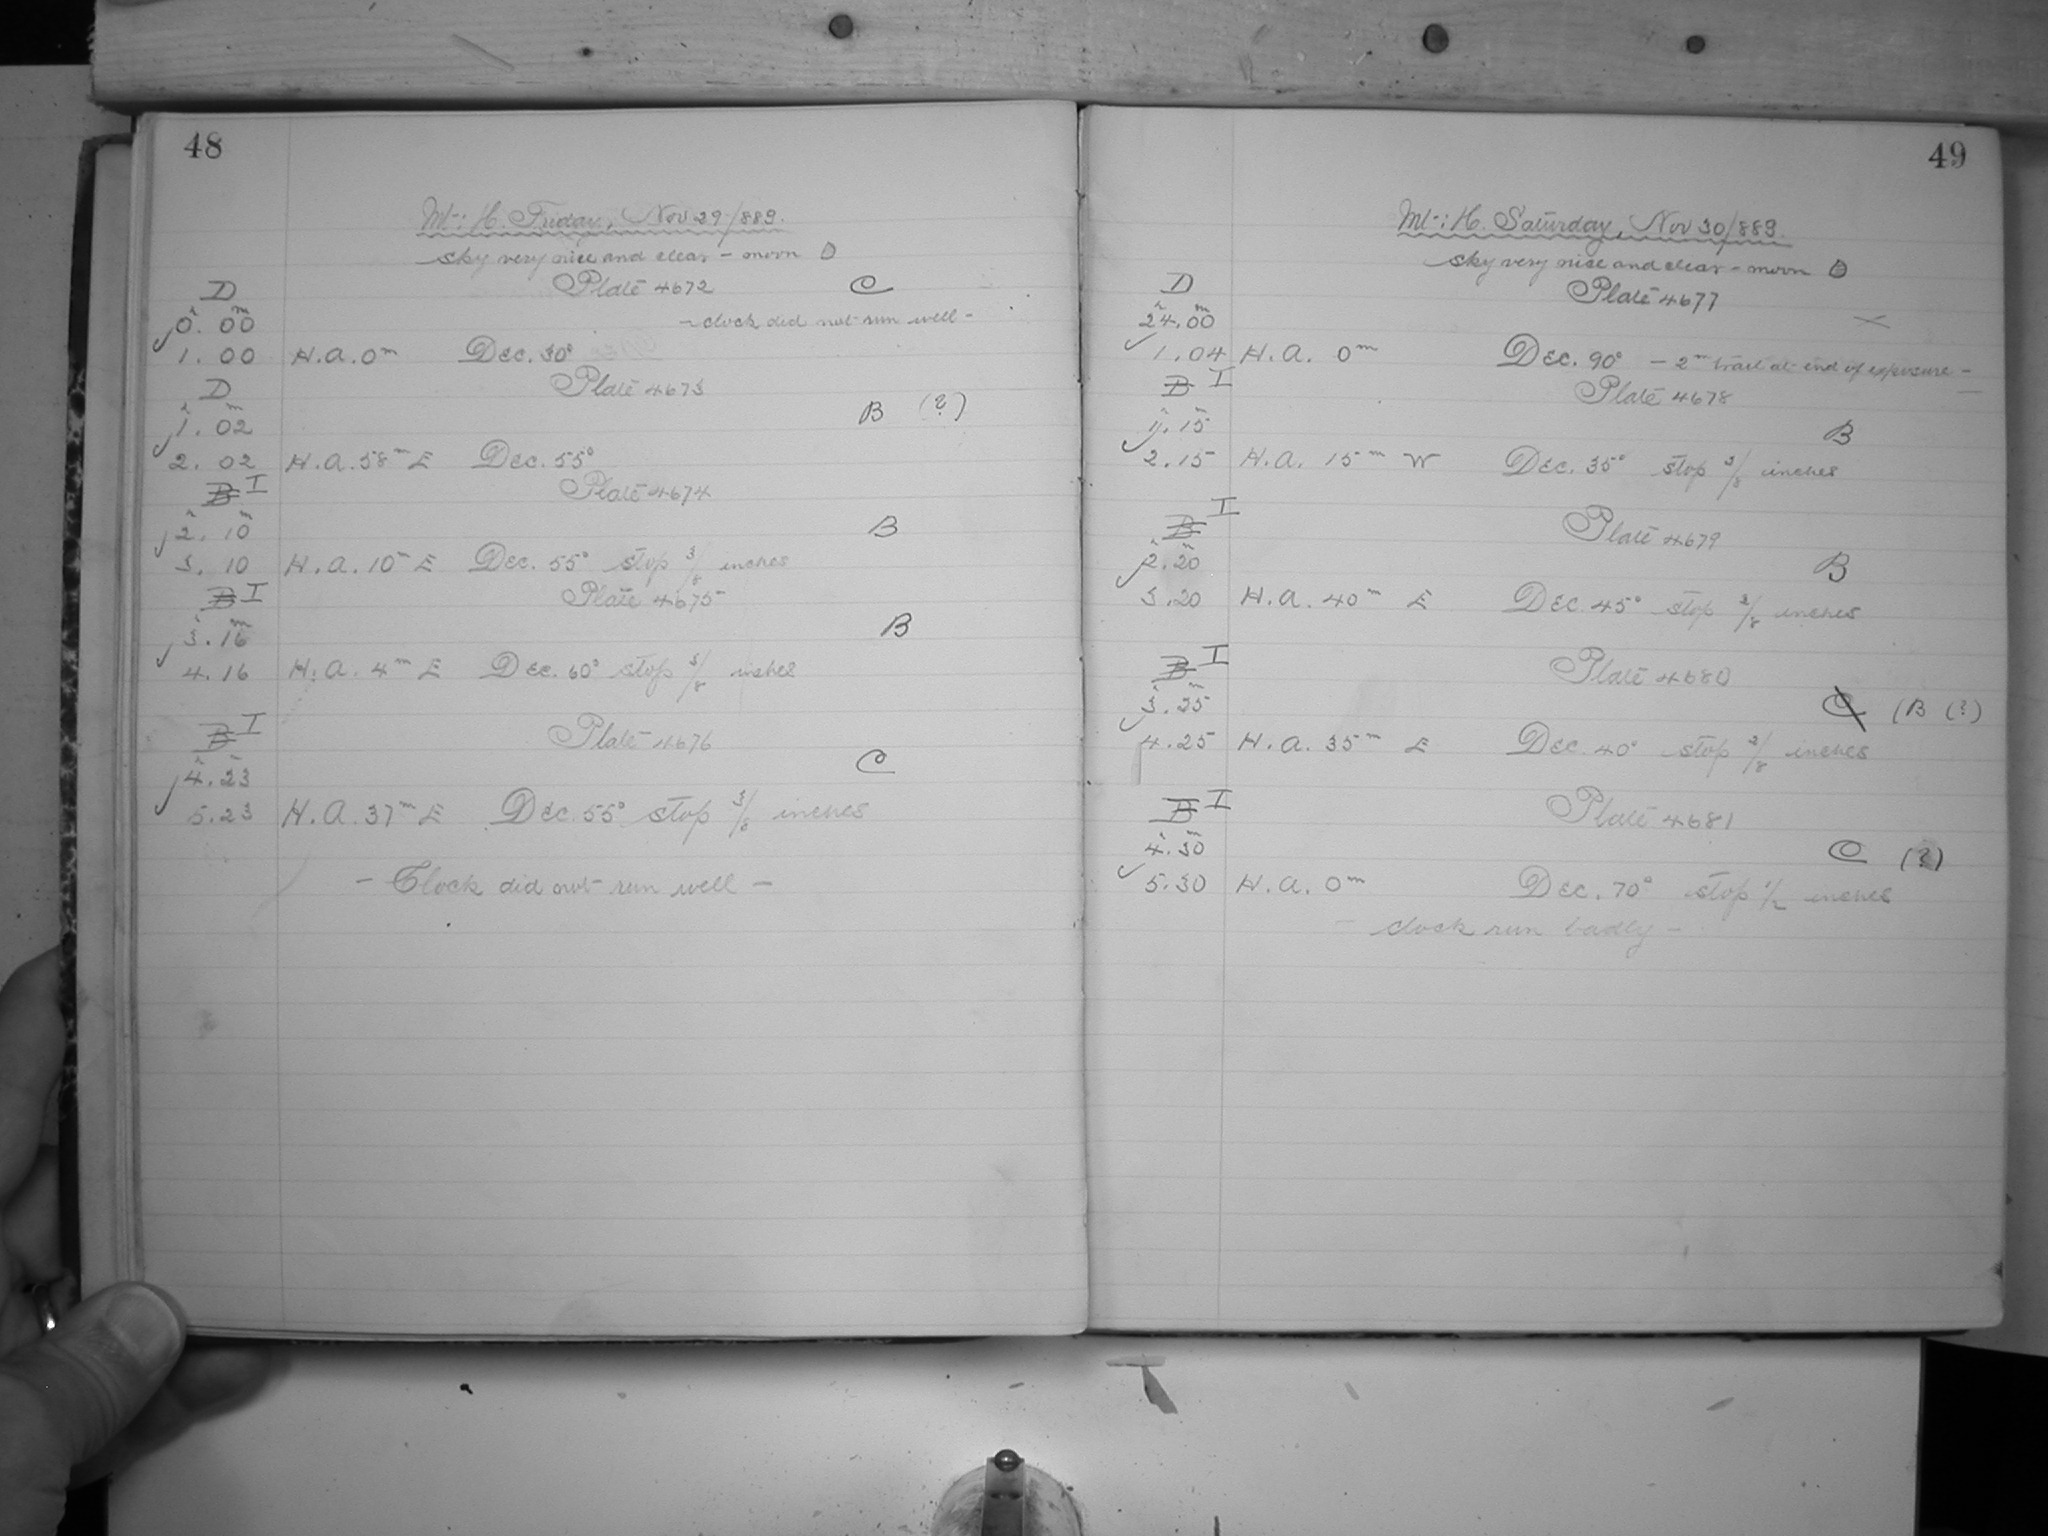 48
Mt: H. Friday, Nov 29/889.
sky very nice and clear - moon D
D Plate 4672 C
0h. 00m - clock did not run well -
1. 00 H.A. 0m Dec. 30°
D Plate 4673
1h. 02m B (?)
2. 02 H.A. 58m E Dec. 55°
B I Plate 4674
2h. 10m B
3. 10 H.A. 10m E Dec. 55° stop 3/8 inches
B I Plate 4675
3h. 16m B
4. 16 H.A. 4m E Dec. 60° stop 3/8 inches
B I Plate 4676
4h. 23m C
5. 23 H.A. 37m E Dec. 55° stop 3/8 inches
- Clock did not run well -
49
Mt: H. Saturday, Nov 30/889.
sky very nice and clear - moon D
D Plate 4677
24h. 00m
1. 04 H.A. 0m Dec. 90° - 2m trail at end of exposure -
B I Plate 4678
1h. 15m B
2. 15 H.A. 15m W Dec. 35° stop 3/8 inches
B I Plate 4679
2h. 20m B
3. 20 H.A. 40m E Dec. 45° stop 3/8 inches
B I Plate 4680
3h. 25m C (B (?)
4. 25 H.A. 35m E Dec. 40° stop 3/8 inches
B I Plate 4681
4h. 30m C (?)
5. 30 H.A. 0m Dec. 70° stop 1/2 inches
- clock run badly -